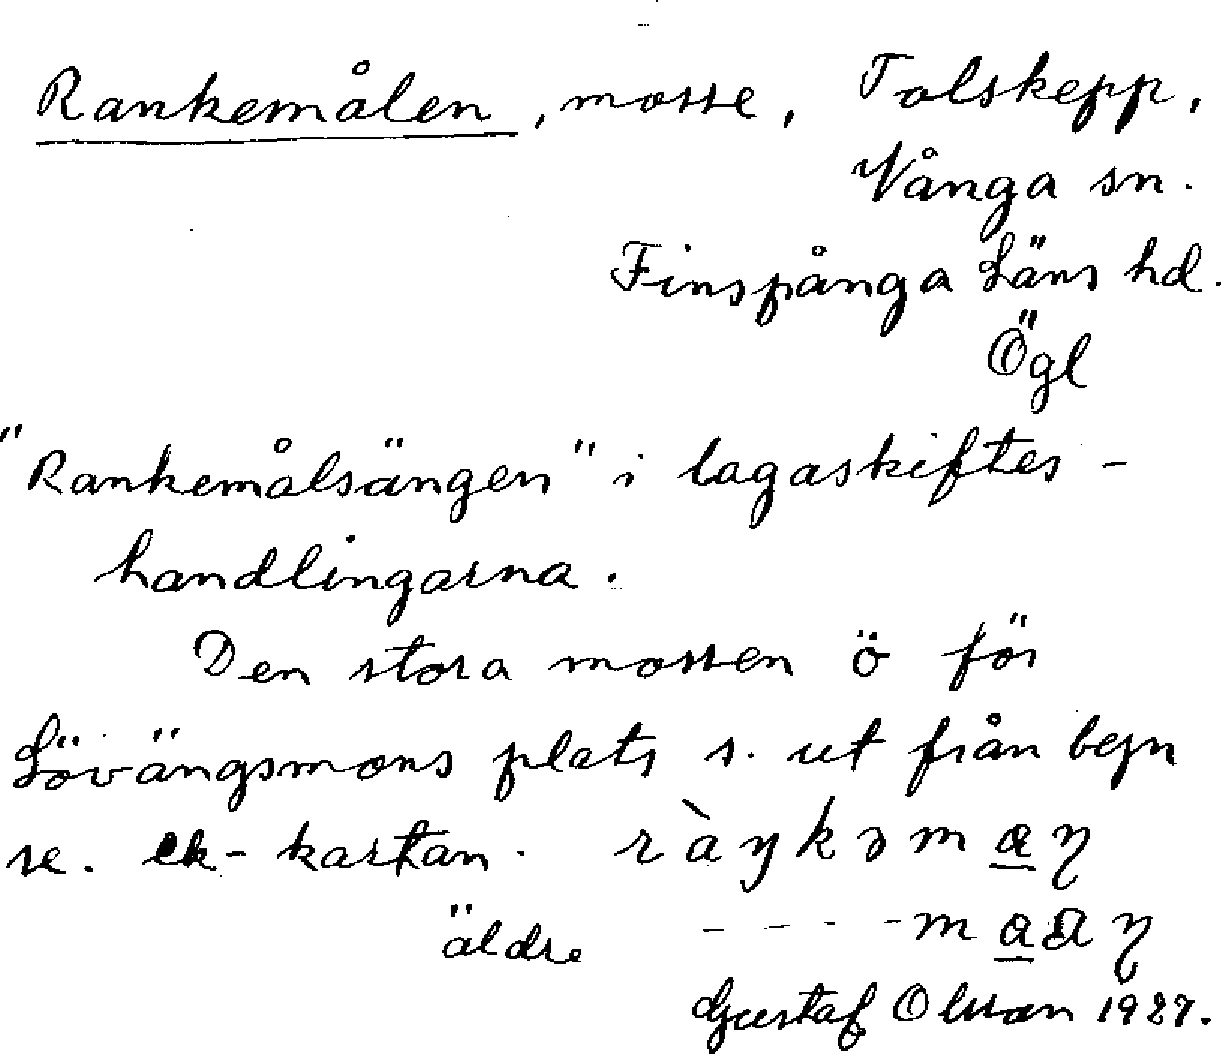 Rankemålen, mosse, Tolskepp,
Vånga sn.
Finspånga Läns hd.
Ögl
"Rankemålsängen" i lagaskiftes-
handlingarna.
Den stora mossen ö för
Lövängsmons plats s. ut från
se. ek-kartan.
äldre
Gustaf Olsson 1927.